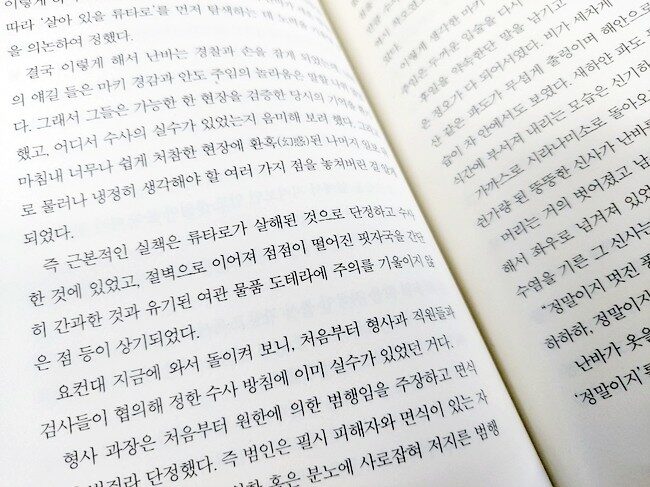 따라 ‘살아 있을 류타로’를 먼저 탐색하는 데 노력을
을 의논하여 정했다.
결국 이렇게 해서 난바는 경찰과 손을 잡게 되었는데
의 얘길 들은 마키 경감과 안도 주임의 놀라움은 말할 나위
다. 그래서 그들은 가능한 한 현장을 검증한 당시의 기억을
했고, 어디서 수사의 실수가 있었는지 음미해 보려 했다.
마침내 너무나 쉽게 처참한 현장에 환혹(幻惑)된 나머지 일보
로 물러나 냉정히 생각해야 할 여러 가지 점을 놓쳐버린 걸 알게
되었다.
즉 근본적인 실책은 류타로가 살해된 것으로 단정하고 수사
한 것에 있었고, 절벽으로 이어져 점점이 떨어진 핏자국을 간단
히 간과한 것과 유기된 여관 물품 도테라에 주의를 기울이지 않
은 점 등이 상기되었다.
요컨대 지금에 와서 돌이켜 보니, 처음부터 형사과 직원들과
검사들이 협의해 정한 수사 방침에 이미 실수가 있었던 거다.
형사 과장은 처음부터 원한에 의한 범행임을 주장하고 면식
단정했다. 즉 범인은 필시 피해자와 면식이 있는 자
혹은 분노에 사로잡혀 저지른 범행
있다.
이렇게 생각한 마키
주임은 두꺼운 입술을 다시
후일을 약속한단 말을 남기고
은 정오가 다 되어서였다. 비가 세차게
산 같은 파도가 무섭게 출렁이며 해안으로
습이 차 안에서도 보였다. 새하얀 파도
식간에 부서져 내리는 모습은 신기하
가까스로 시라나미소로 돌아오
선가량 된 뚱뚱한 신사가 난바를
머리는 거의 벗어졌고 남
해서 좌우로 넘겨져 있었
수염을 기른 그 신사는
“정말이지 멋진 풍
하하하. 정말이지
난바가 웃을
‘정말이지’